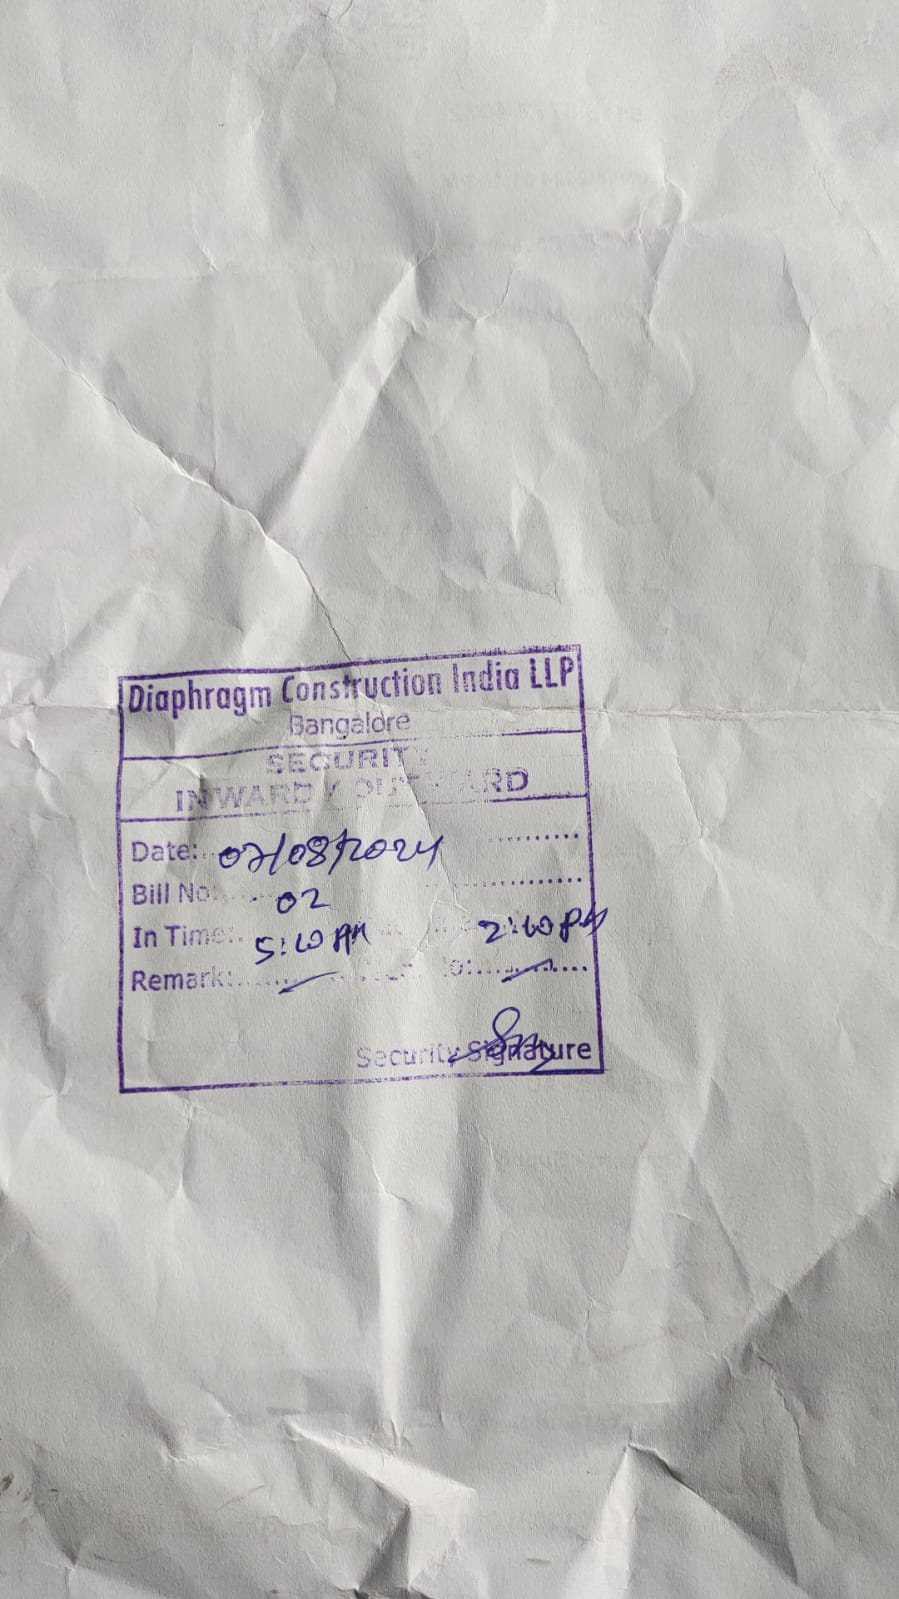 Diaphragm Construction India LLP
Bangalore
SECURITY
INWARD / OUTWARD
Date: 07/08/2024
Bill No: 02
In Time: 5:10 PM 2:40 PM
Remark:
Security Signature